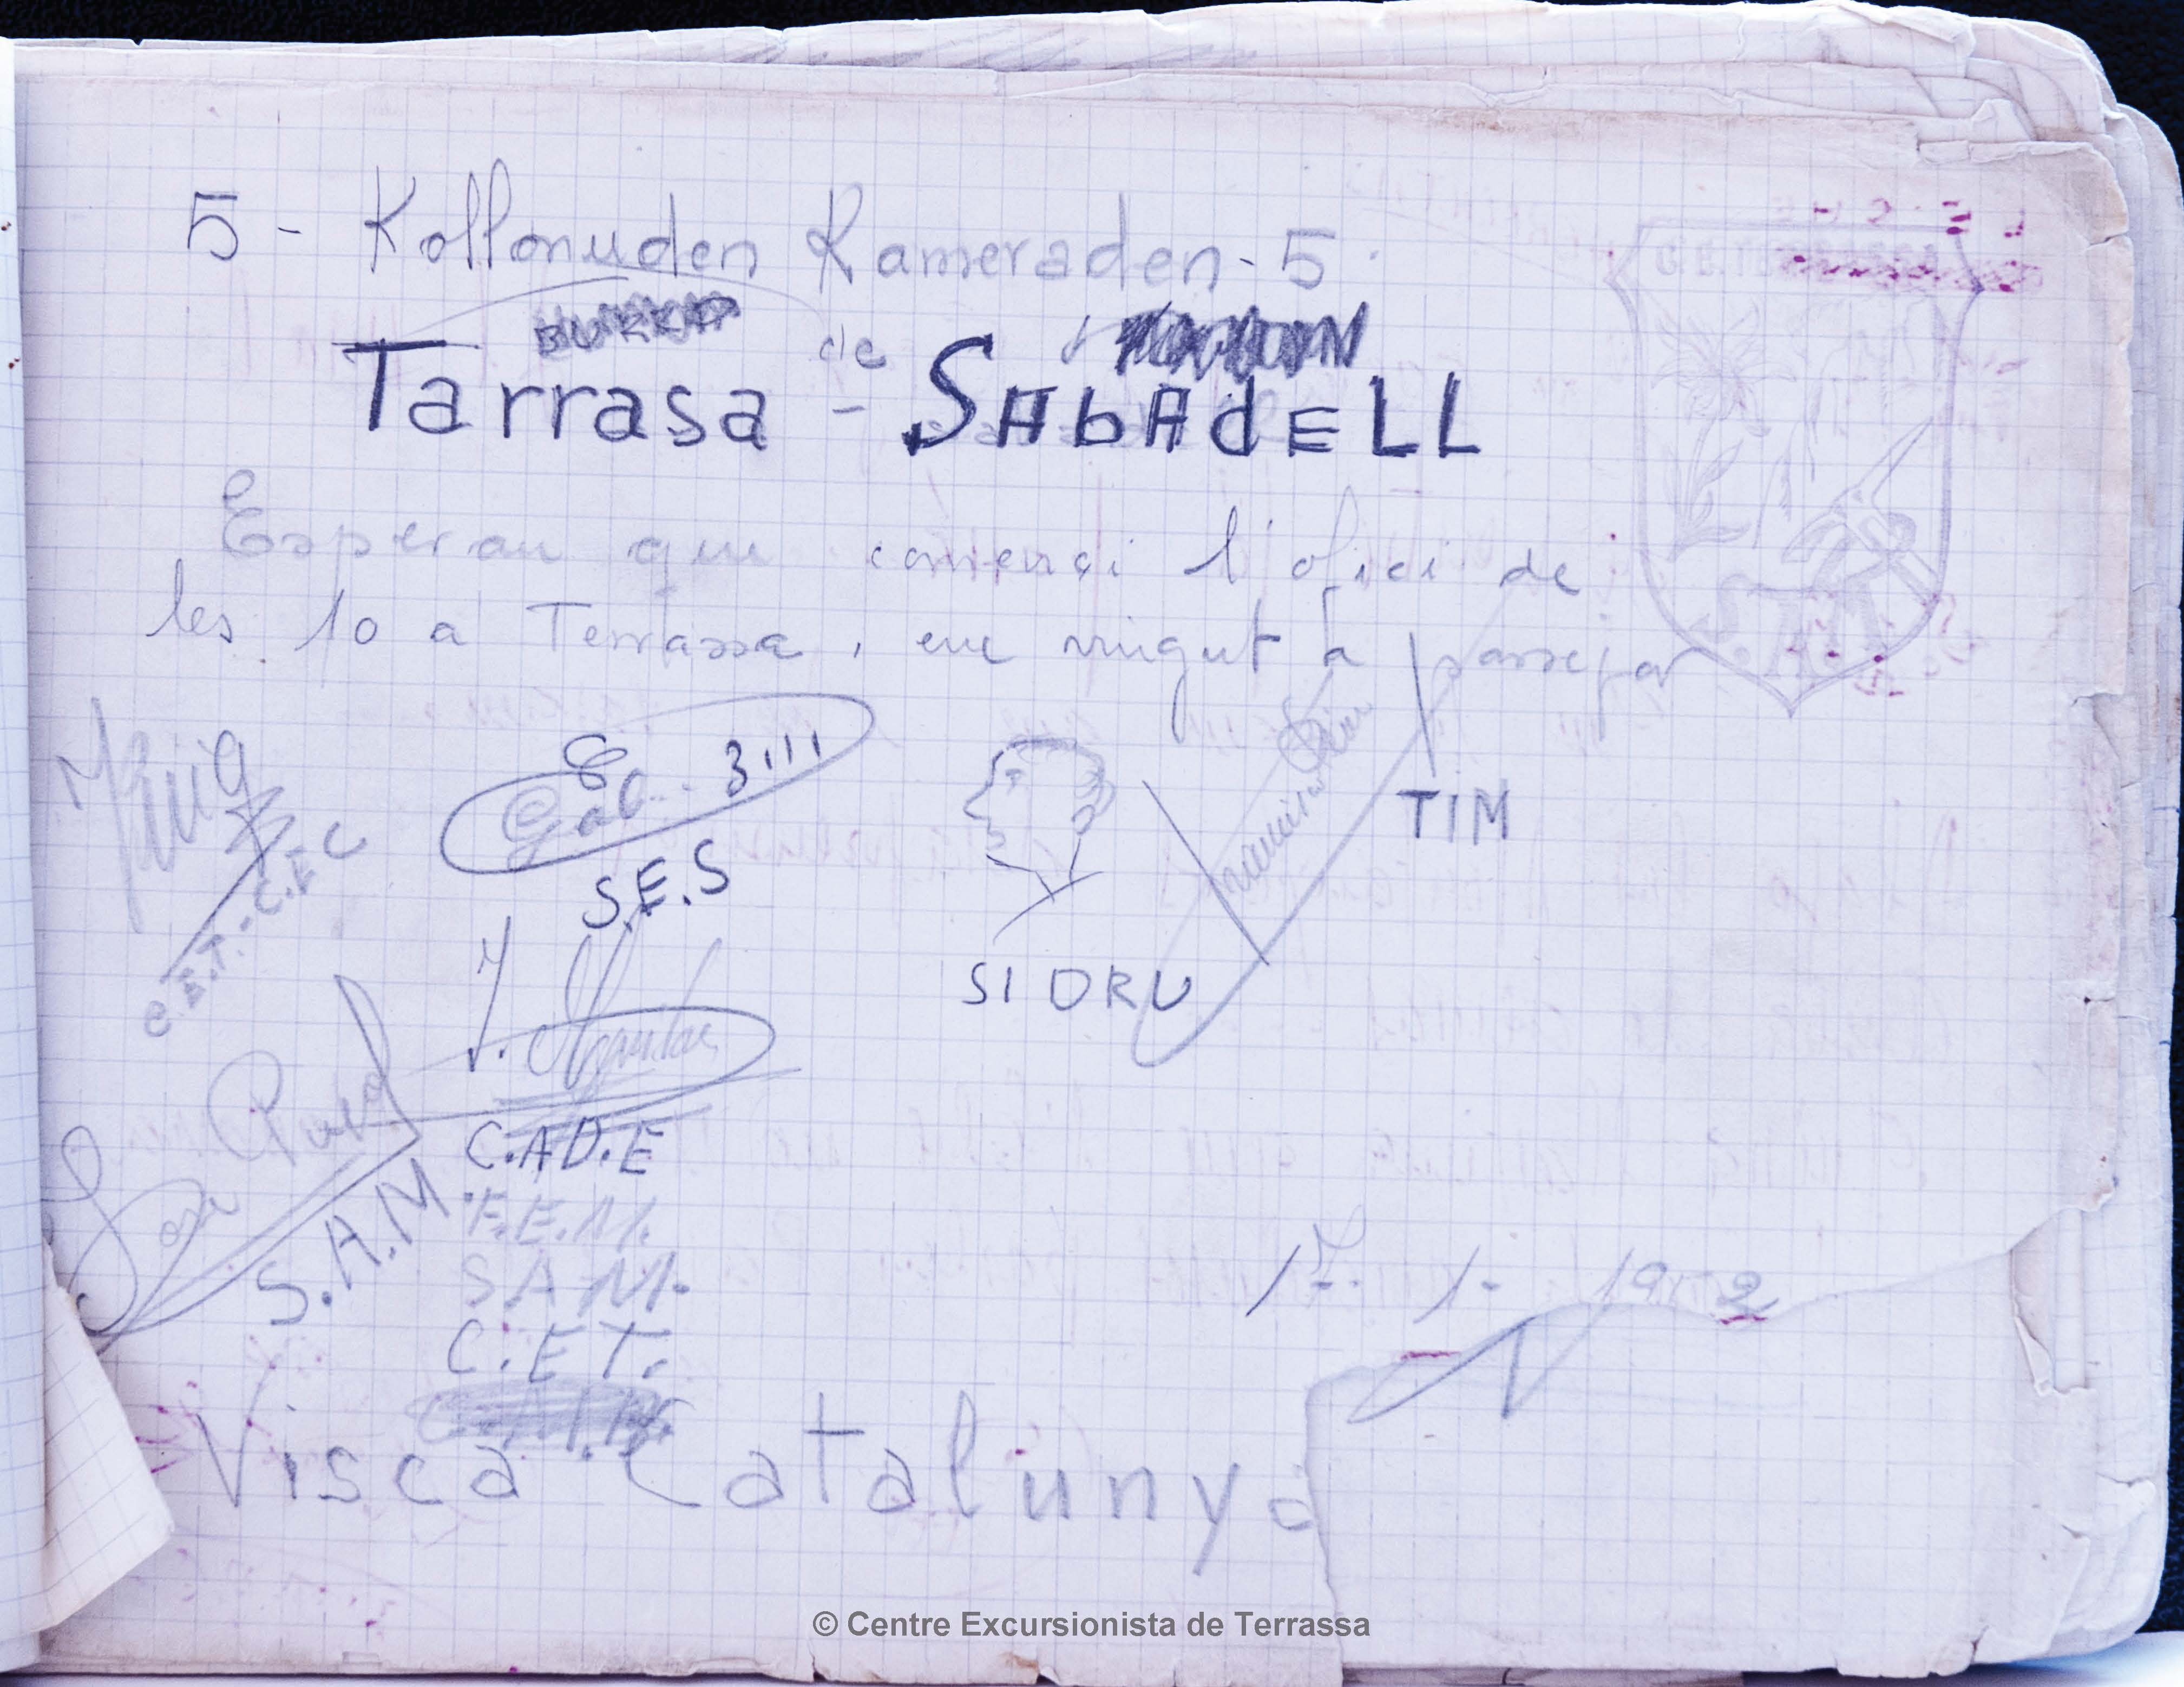 5 - Kollonuden Kameraden - 5
de
Tarrasa - SAbAdELL
Esperan que començi l'ofici de
les 10 a Terrassa, em vingut a passejar
Puig
C.E.T.-C.E.C
Gab... 3
S.E.S
SIDRU
TIM
J.
C.A.D.E
F.E.M.
S.A.M.
C.E.T.
Jose
S.A.M.
17. 1. 1952
Visca Catalunya
© Centre Excursionista de Terrassa